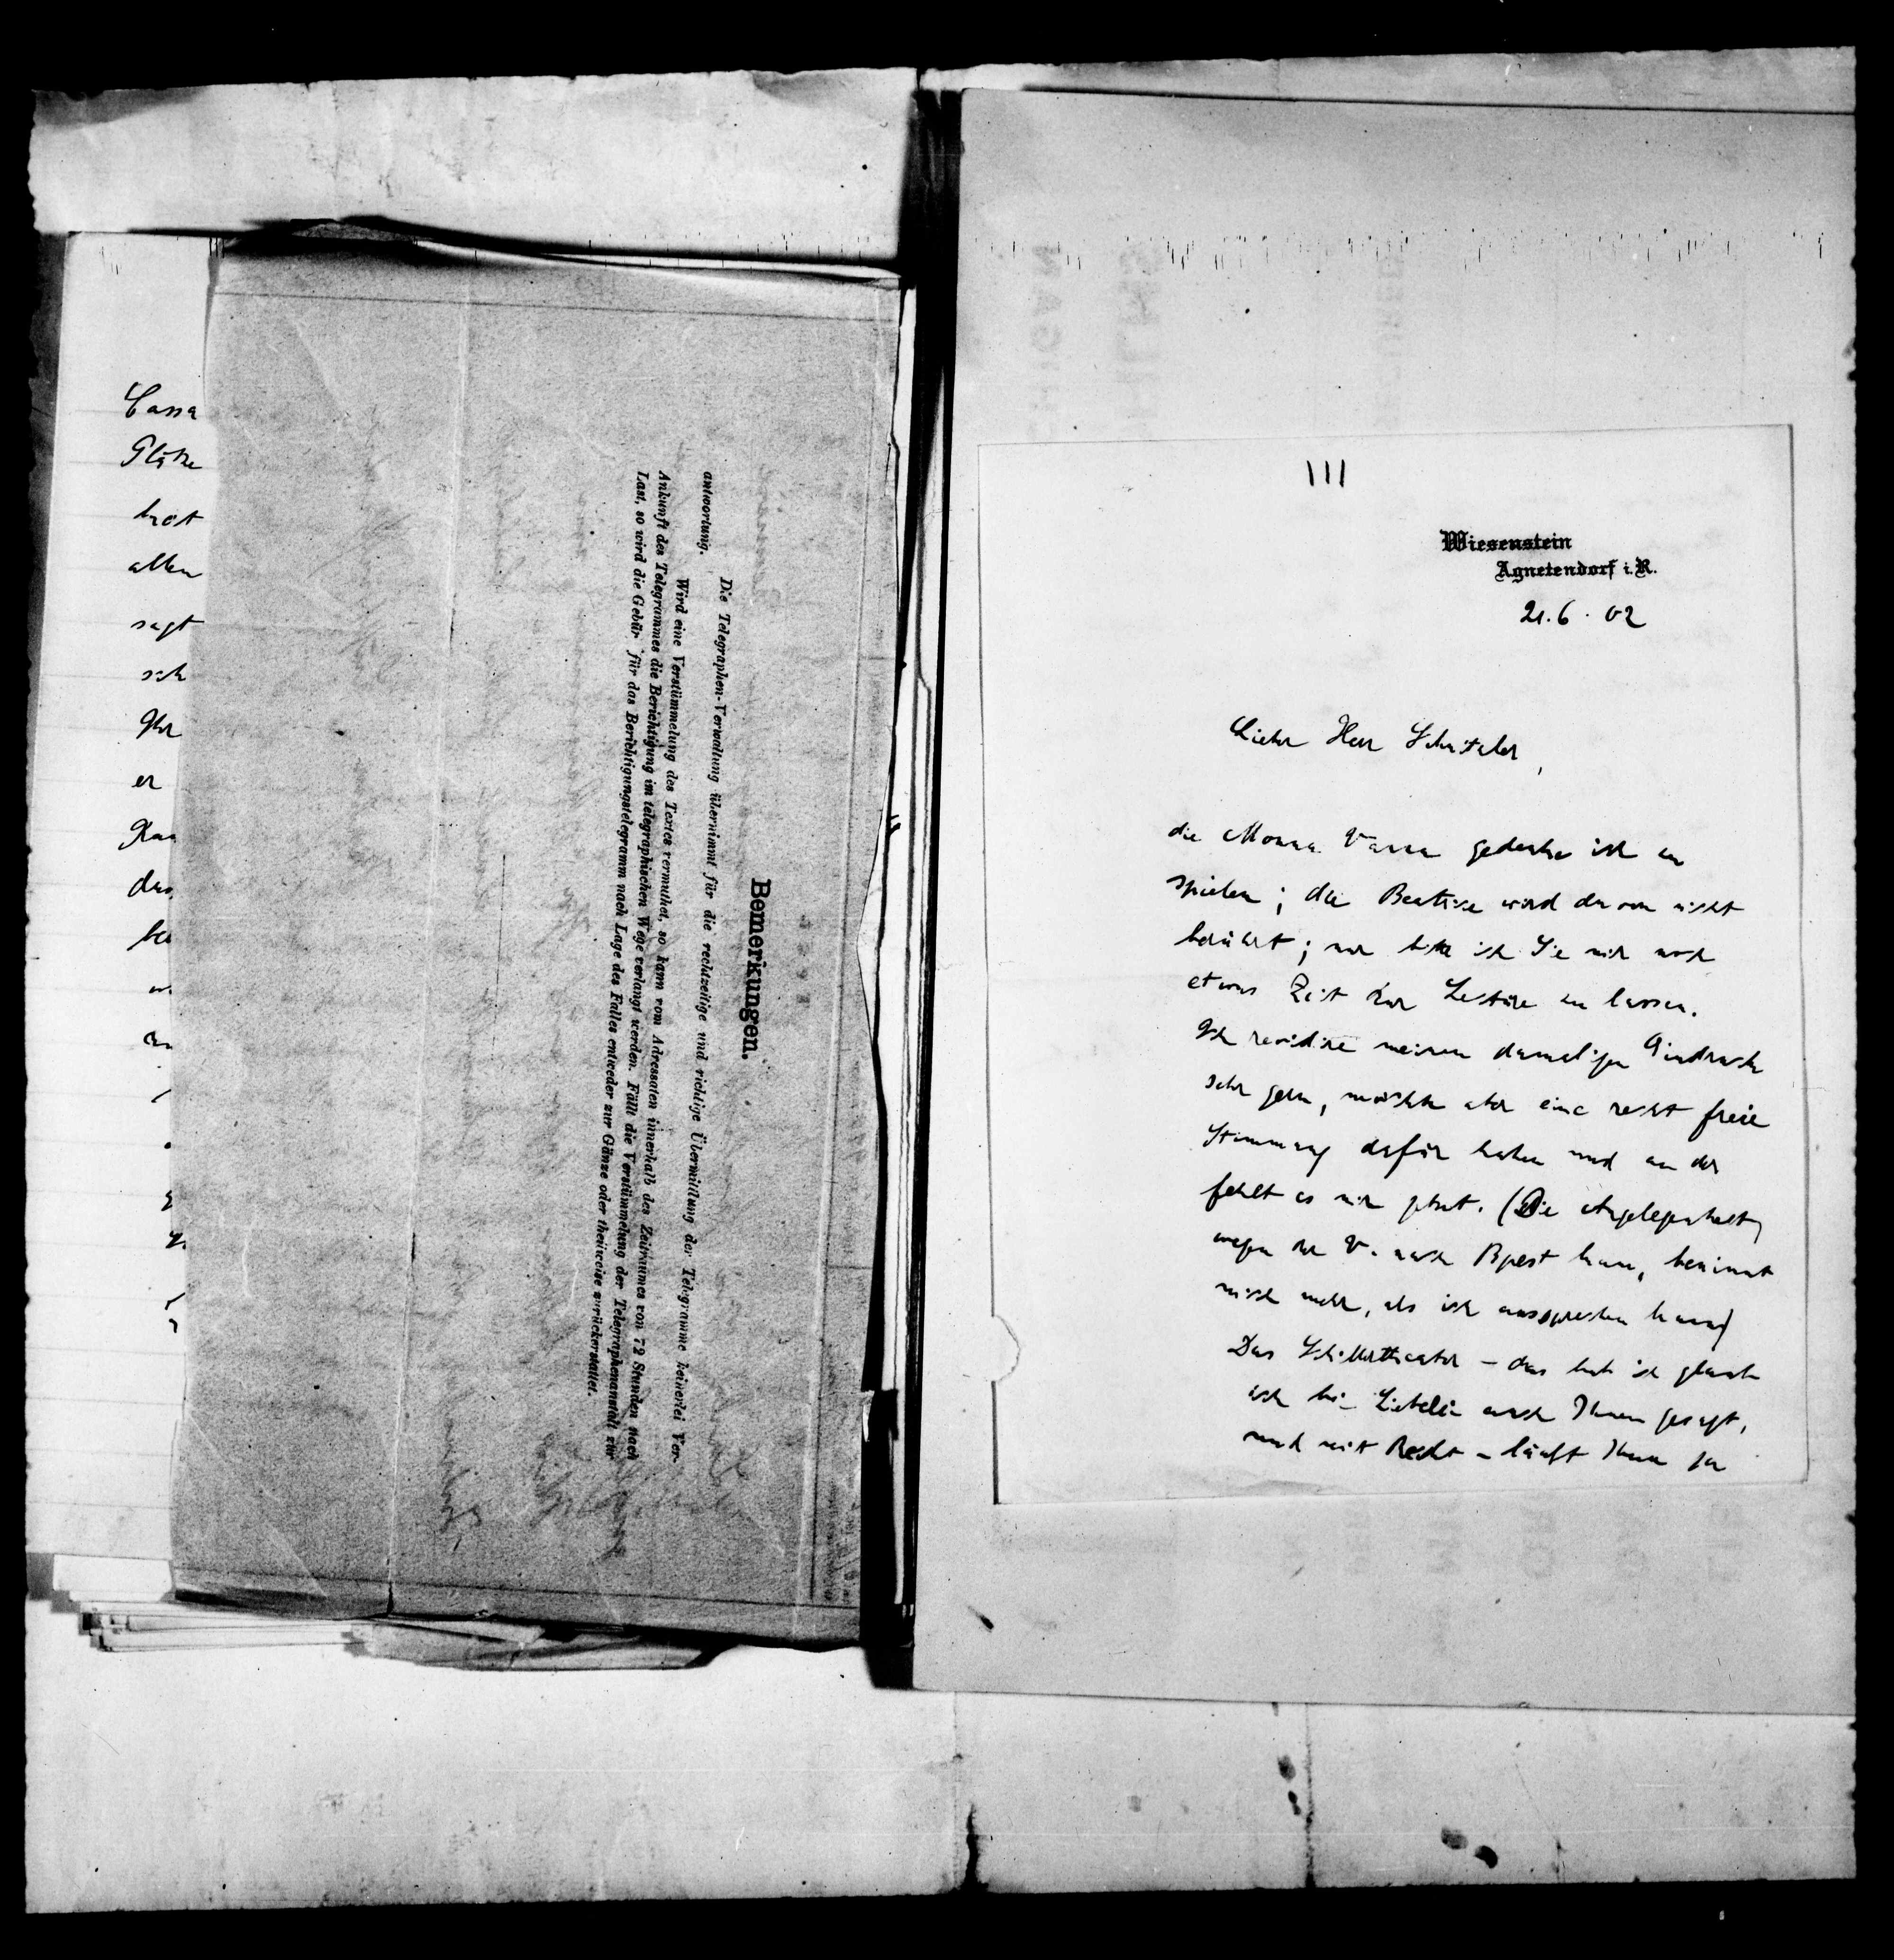 Cassa
Glätte
hat
allen
sagt
sich
Ihr
er
das
Bemerkungen.
Die Telegraphen-Verwaltung übernimmt für die rechtzeitige und richtige Übermittlung der Telegramme keinerlei Ver-
antwortung.
Wird eine Verstümmelung des Textes vermuthet, so kann vom Adressaten innerhalb des Zeitraumes von 72 Stunden nach
Ankunft des Telegrammes die Berichtigung im telegraphischen Wege verlangt werden. Fällt die Verstümmelung der Telegraphenanstalt zur
Last, so wird die Gebür für das Berichtigungstelegramm nach Lage des Falles entweder zur Gänze oder theilweise zurückerstattet.
III
Wiesenstein
Agnetendorf i. R.
21. 6. 02
Lieber Herr Schnitzler,
die Monna Vanna gedenke ich zu
spielen; die Beatrice wird davon nicht
berührt; nur bitte ich Sie mir noch
etwas Zeit zur Lectüre zu lassen.
Ich revidire meinen damaligen Eindruck
sehr gern, möchte aber eine recht freie
Stimmung dafür haben und an der
fehlt es mir jetzt. (Die Angelegenheit,
wegen der V. nach Bpest kam, benimmt
mich mehr, als ich aussprechen kann)
Das Schillertheater – das hab ich glaub
ich bei Liebelei auch Ihnen gesagt,
und mit Recht – läuft Ihnen ja